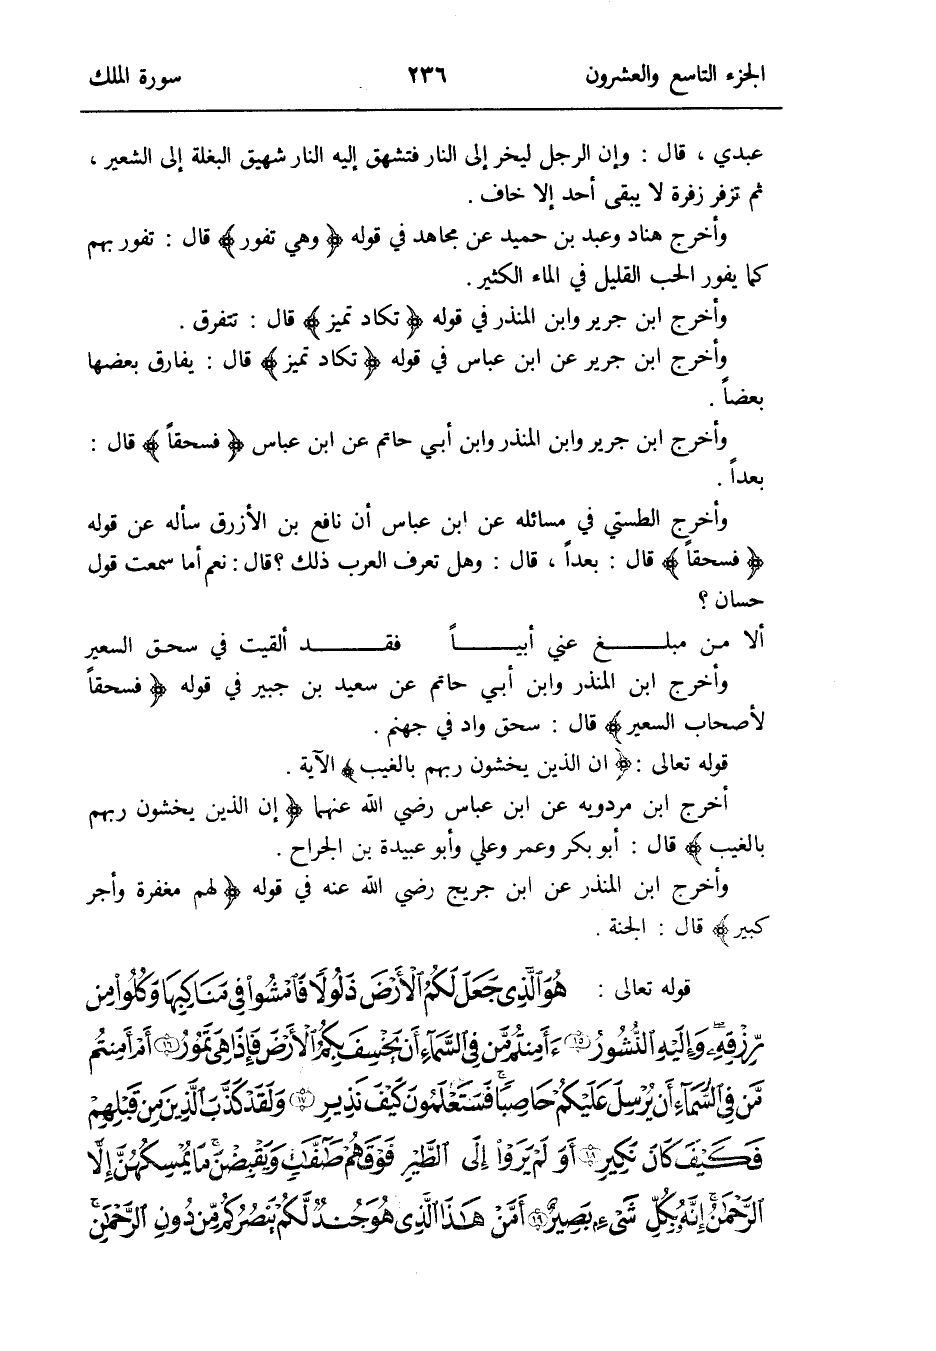 الجزء التاسع والعشرون ٢٣٦ سورة الملك
عبدي ، قال : وإن الرجل ليخر إلى النار فتشهق إليه النار شهيق البغلة إلى الشعير ،
ثم تزفر زفرة لا يبقى أحد إلا خاف .
وأخرج هناد وعبد بن حميد عن مجاهد في قوله ﴿ وهي تفور ﴾ قال : تفور بهم
كما يفور الحب القليل في الماء الكثير .
وأخرج ابن جرير وابن المنذر في قوله ﴿ تكاد تميز ﴾ قال : تتفرق .
وأخرج ابن جرير عن ابن عباس في قوله ﴿ تكاد تميز ﴾ قال : يفارق بعضها
بعضاً .
وأخرج ابن جرير وابن المنذر وابن أبي حاتم عن ابن عباس ﴿ فسحقاً ﴾ قال :
بعداً .
وأخرج الطستي في مسائله عن ابن عباس أن نافع بن الأزرق سأله عن قوله
﴿ فسحقاً ﴾ قال : بعداً ، قال : وهل تعرف العرب ذلك ؟ قال : نعم أما سمعت قول
حسان ؟
ألا من مبلـــغ عني أبيـــاً فقـــد ألقيت في سحق السعير
وأخرج ابن المنذر وابن أبي حاتم عن سعيد بن جبير في قوله ﴿ فسحقاً
لأصحاب السعير ﴾ قال : سحق واد في جهنم .
قوله تعالى : ﴿ ان الذين يخشون ربهم بالغيب ﴾ الآية .
أخرج ابن مردويه عن ابن عباس رضي الله عنهما ﴿ إن الذين يخشون ربهم
بالغيب ﴾ قال : أبو بكر وعمر وعلي وأبو عبيدة بن الجراح .
وأخرج ابن المنذر عن ابن جريج رضي الله عنه في قوله ﴿ لهم مغفرة وأجر
كبير ﴾ قال : الجنة .
قوله تعالى : هُوَ ٱلَّذِى جَعَلَ لَكُمُ ٱلْأَرْضَ ذَلُولًا فَٱمْشُوا۟ فِى مَنَاكِبِهَا وَكُلُوا۟ مِن
رِّزْقِهِۦ ۖ وَإِلَيْهِ ٱلنُّشُورُ ١٥ ءَأَمِنتُم مَّن فِى ٱلسَّمَآءِ أَن يَخْسِفَ بِكُمُ ٱلْأَرْضَ فَإِذَا هِىَ تَمُورُ ١٦ أَمْ أَمِنتُم
مَّن فِى ٱلسَّمَآءِ أَن يُرْسِلَ عَلَيْكُمْ حَاصِبًا ۖ فَسَتَعْلَمُونَ كَيْفَ نَذِيرِ ١٧ وَلَقَدْ كَذَّبَ ٱلَّذِينَ مِن قَبْلِهِمْ
فَكَيْفَ كَانَ نَكِيرِ ١٨ أَوَلَمْ يَرَوْا۟ إِلَى ٱلطَّيْرِ فَوْقَهُمْ صَـٰٓفَّـٰتٍ وَيَقْبِضْنَ ۚ مَا يُمْسِكُهُنَّ إِلَّا
ٱلرَّحْمَـٰنُ ۚ إِنَّهُۥ بِكُلِّ شَىْءٍۭ بَصِيرٌ ١٩ أَمَّنْ هَـٰذَا ٱلَّذِى هُوَ جُندٌ لَّكُمْ يَنصُرُكُم مِّن دُونِ ٱلرَّحْمَـٰنِ ۚ